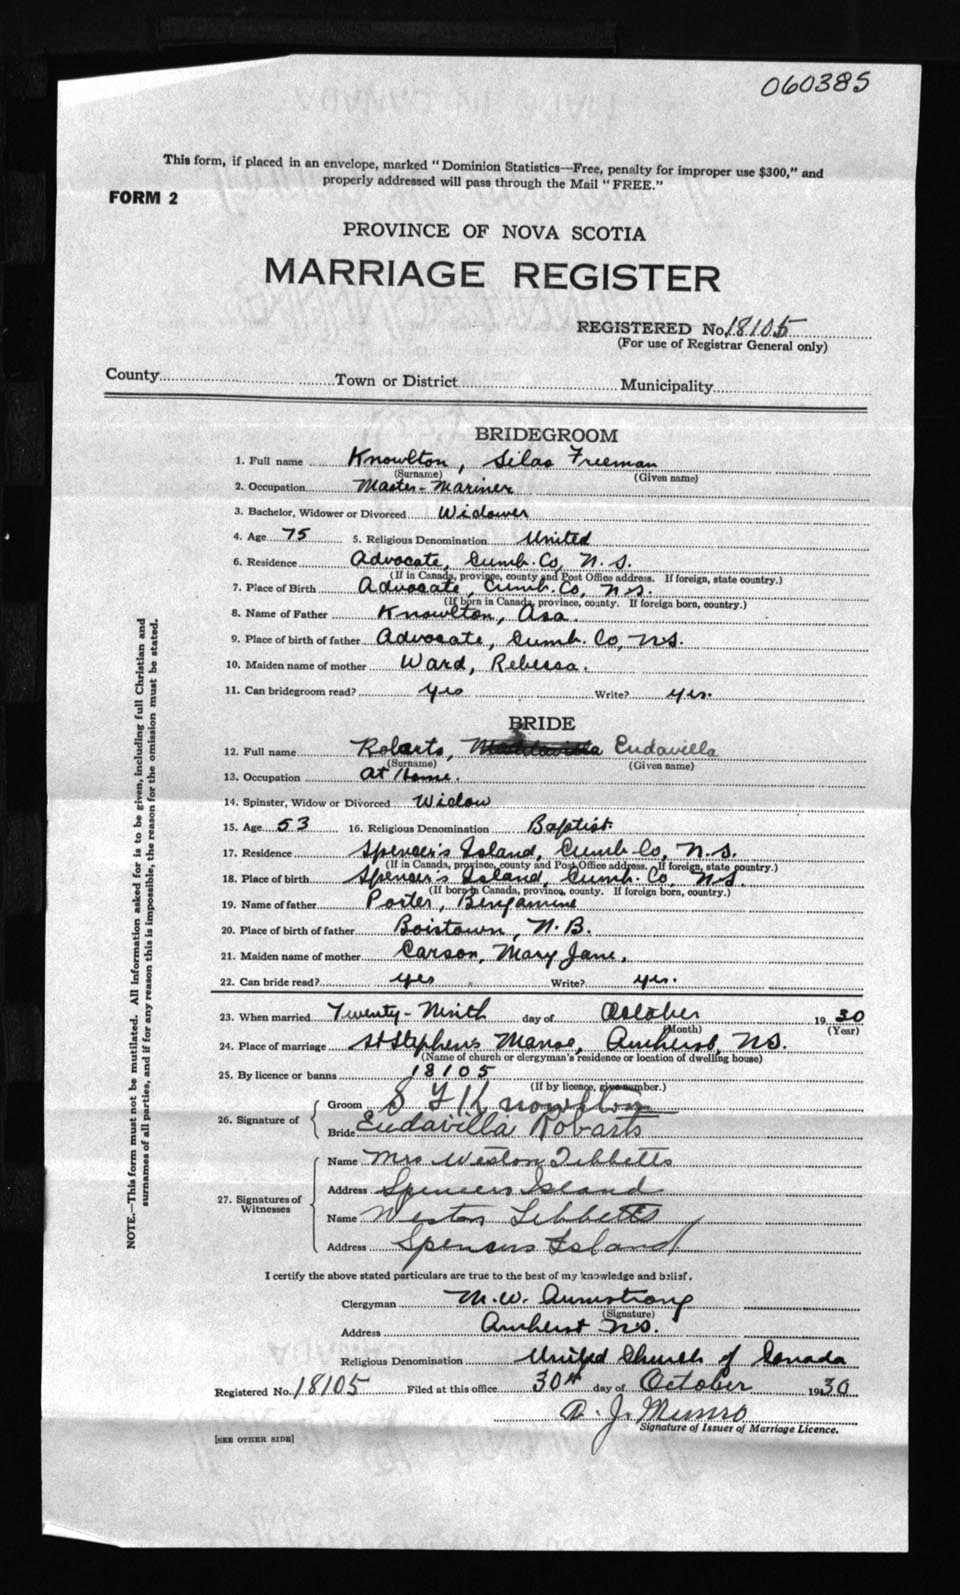 060385
This form, if placed in an envelope, marked "Dominion Statistics—Free, penalty for improper use $300," and
properly addressed will pass through the Mail "FREE."
FORM 2
PROVINCE OF NOVA SCOTIA
MARRIAGE REGISTER
REGISTERED No. 18105
(For use of Registrar General only)
County Town or District Municipality
BRIDEGROOM
1. Full name Knowlton, Silas Freeman
(Surname) (Given name)
2. Occupation Master-Mariner
3. Bachelor, Widower or Divorced Widower
4. Age 75 5. Religious Denomination United
6. Residence Advocate, Cumb. Co, N.S.
(If in Canada, province, county and Post Office address. If foreign, state country.)
7. Place of Birth Advocate, Cumb. Co, N.S.
(If born in Canada, province, county. If foreign born, country.)
8. Name of Father Knowlton, Asa.
9. Place of birth of father Advocate, Cumb. Co, N.S.
10. Maiden name of mother Ward, Rebecca.
11. Can bridegroom read? yes Write? yes.
BRIDE
12. Full name Robarts, Eudavilla
(Surname) (Given name)
13. Occupation At Home.
14. Spinster, Widow or Divorced Widow
15. Age 53 16. Religious Denomination Baptist.
17. Residence Spencer's Island, Cumb. Co, N.S.
(If in Canada, province, county and Post Office address. If foreign, state country.)
18. Place of birth Spencer's Island, Cumb. Co, N.S.
(If born in Canada, province, county. If foreign born, country.)
19. Name of father Porter, Benjamine
20. Place of birth of father Boistown, N.B.
21. Maiden name of mother Carson, Mary Jane.
22. Can bride read? yes Write? yes.
23. When married Twenty-Ninth day of October 1930
(Month) (Year)
24. Place of marriage St Stephen's Manse, Amherst, N.S.
(Name of church or clergyman's residence or location of dwelling house)
25. By licence or banns 18105
(If by licence, give number.)
26. Signature of Groom S F Knowlton
Bride Eudavilla Robarts
27. Signatures of Witnesses
Name Mrs Weston Tibbetts
Address Spencers Island
Name Weston Tibbetts
Address Spencers Island
I certify the above stated particulars are true to the best of my knowledge and belief.
Clergyman M. W. Armstrong
(Signature)
Address Amherst N.S.
Religious Denomination United Church of Canada
Registered No. 18105 Filed at this office 30th day of October 1930
A. J. Munro
Signature of Issuer of Marriage Licence.
[SEE OTHER SIDE]
NOTE.—This form must not be mutilated. All information asked for is to be given, including full Christian and
surnames of all parties, and if for any reason this is impossible, the reason for the omission must be stated.